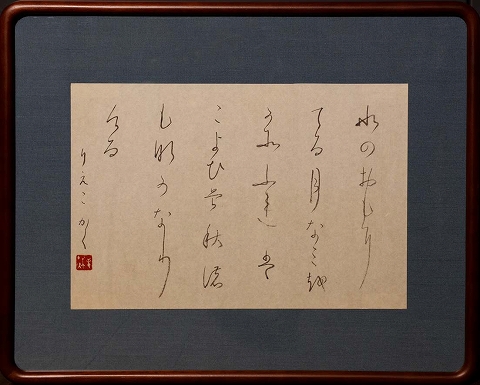 水のおもに
てる月なみを
かぞふれば
こよひぞ秋の
もなかなり
ける
りえこ かく